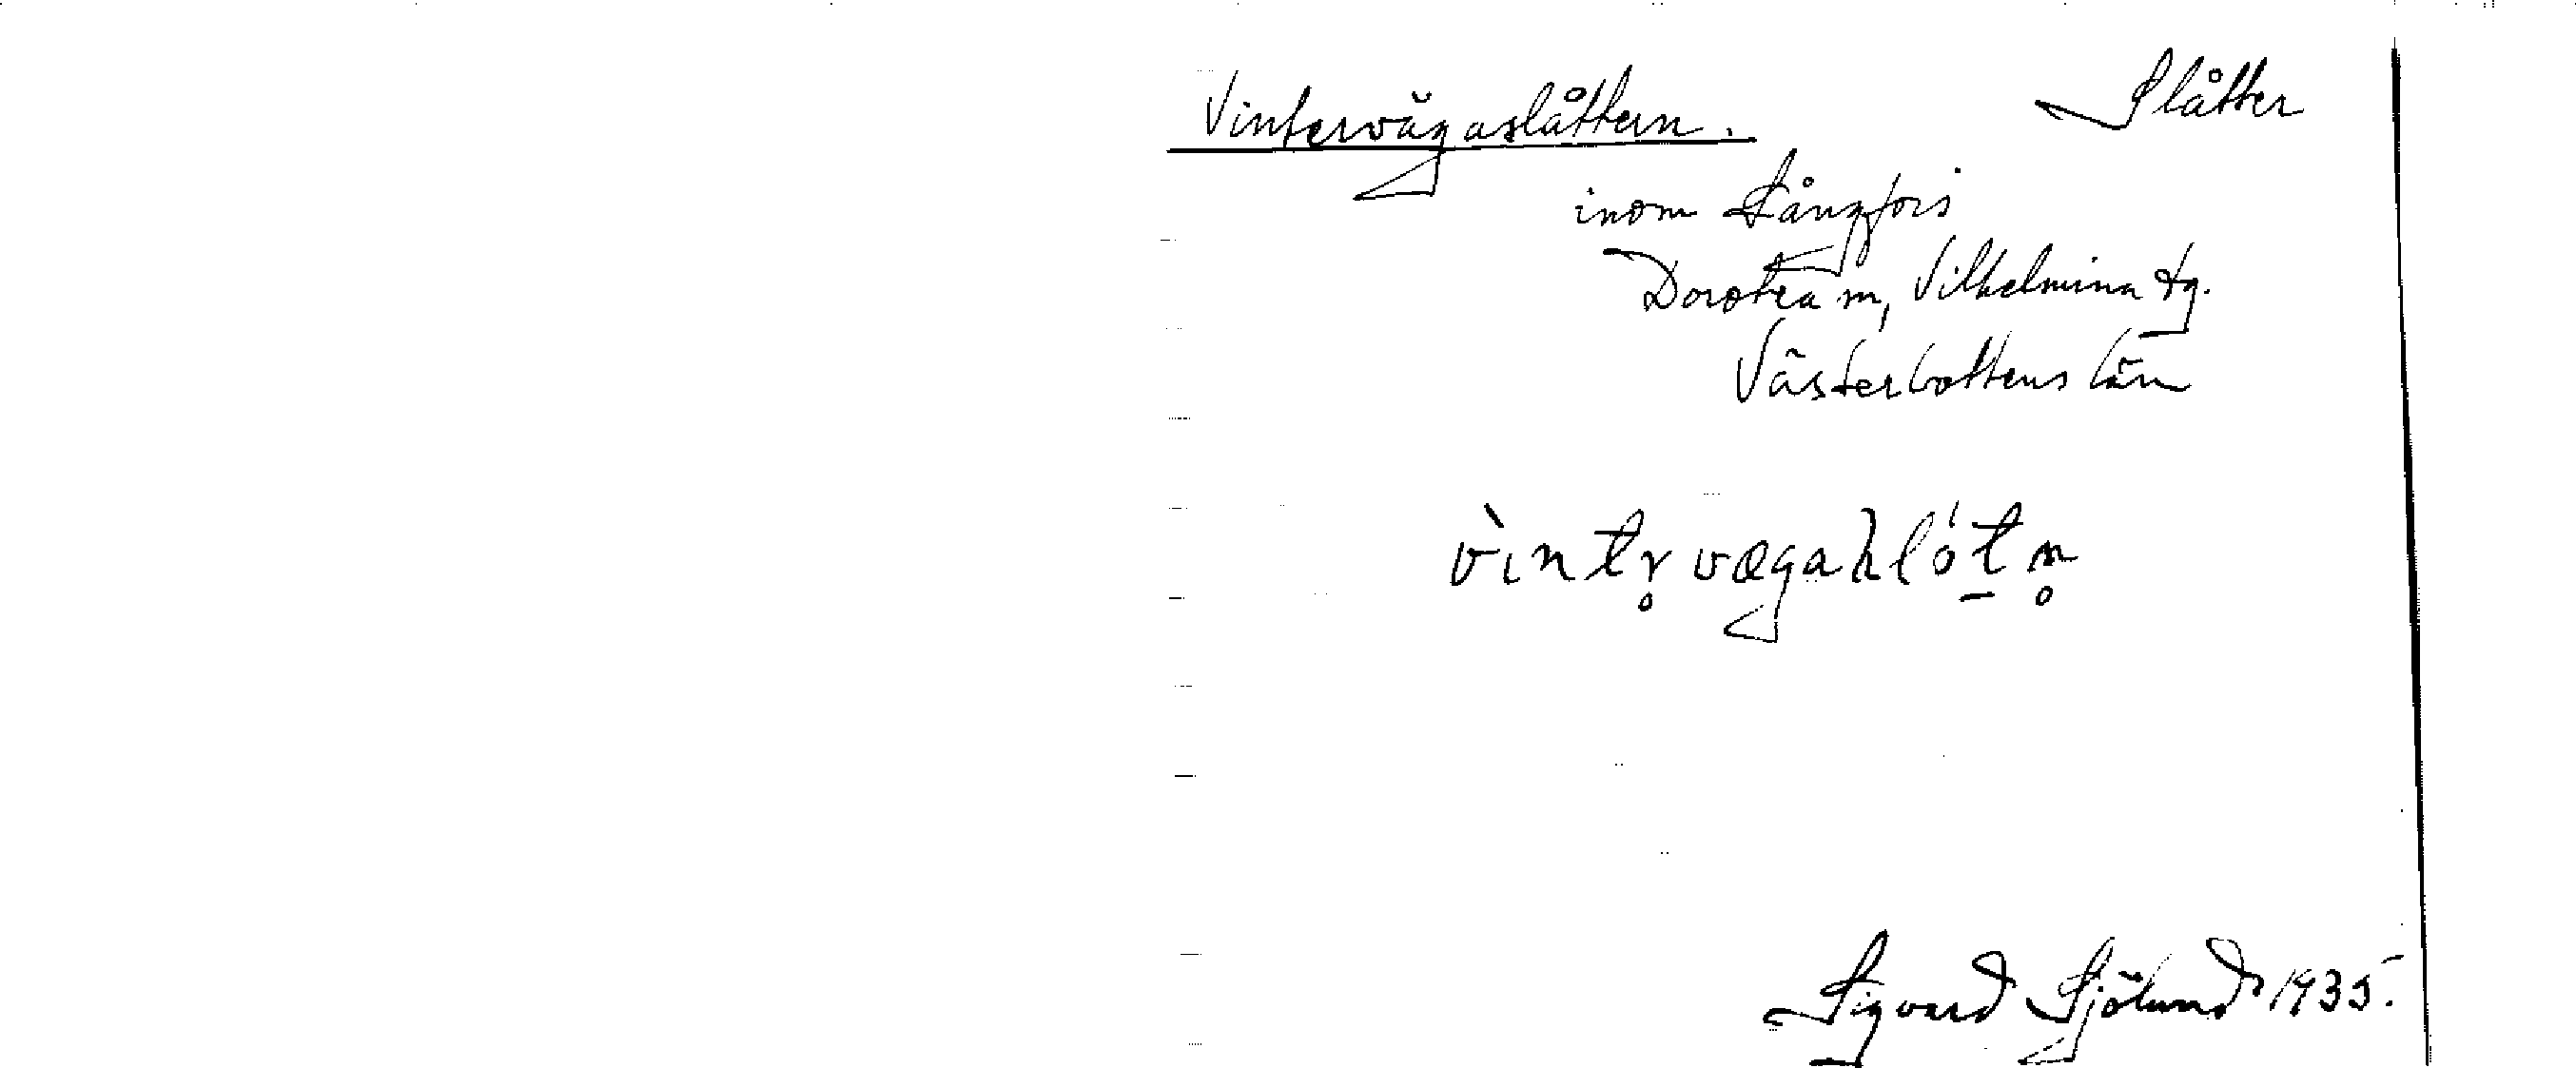 Vintervägaslåttern. Slåtter
inom Långfors
Dorotea m, Vilhelmina tg.
Västerbottens län
vìntr̥vægahlót̠n̥
Sigvard Sjölund 1935.